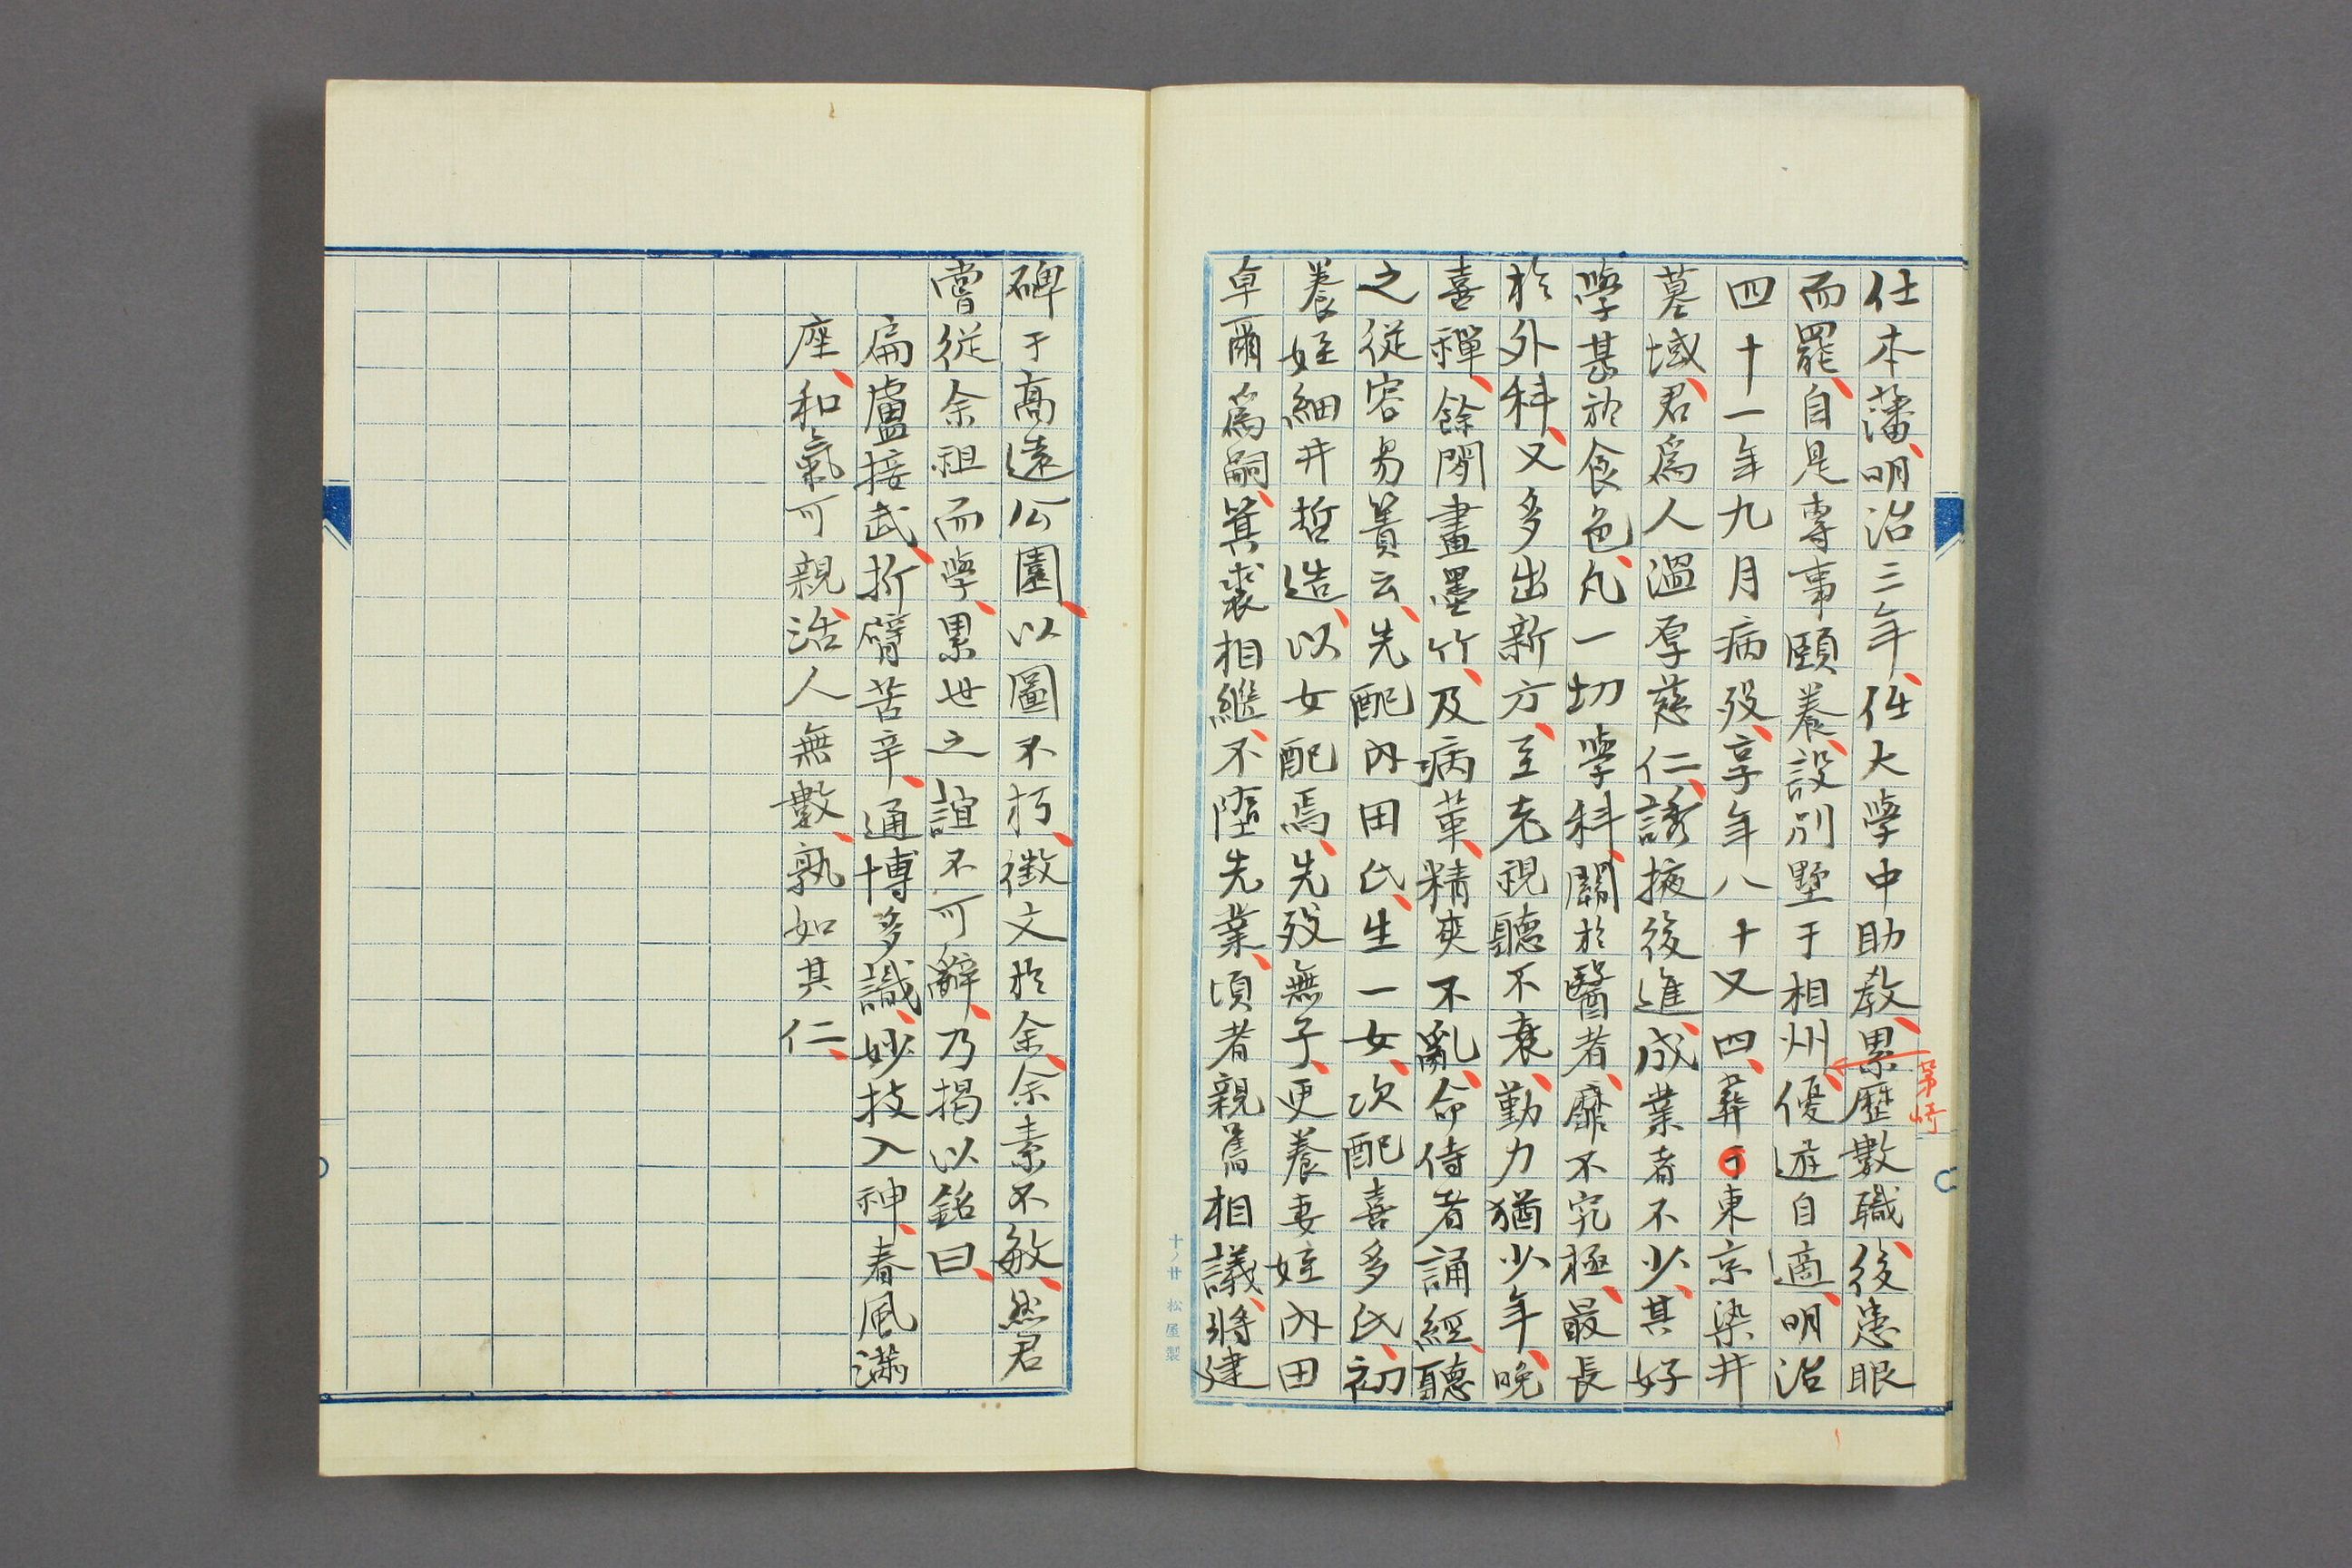 仕本藩、明治三年、任大學中助敎、累歷數職、後患眼
而罷、自是專事頤養、設別墅于相州、優遊自適、明治
四十一年九月病歿、享年八十又四、葬于東京染井
墓域、君爲人溫厚慈仁、誘掖後進、成業者不少、其好
學甚於食色、凡一切學科、關於醫者、靡不究極、最長
於外科、又多出新方、至老視聽不衰、勤力猶少年、晩
喜禪、餘閒畫墨竹、及病革、精爽不亂、命侍者誦經、聽
之從容易簀云、先配內田氏、生一女、次配喜多氏、初
養姪細井哲造、以女配焉、先歿無子、更養妻姪內田
卓爾爲嗣、箕裘相繼、不墮先業、頃者親舊相議、將建
十ノ廿 松屋製
碑于高遠公園、以圖不朽、徵文於余、余素不敏、然君
嘗從余祖而學、累世之誼不可辭、乃揭以銘曰、
扁盧接武、折臂苦辛、通博多識、妙技入神、春風滿
座、和氣可親、活人無數、孰如其仁、